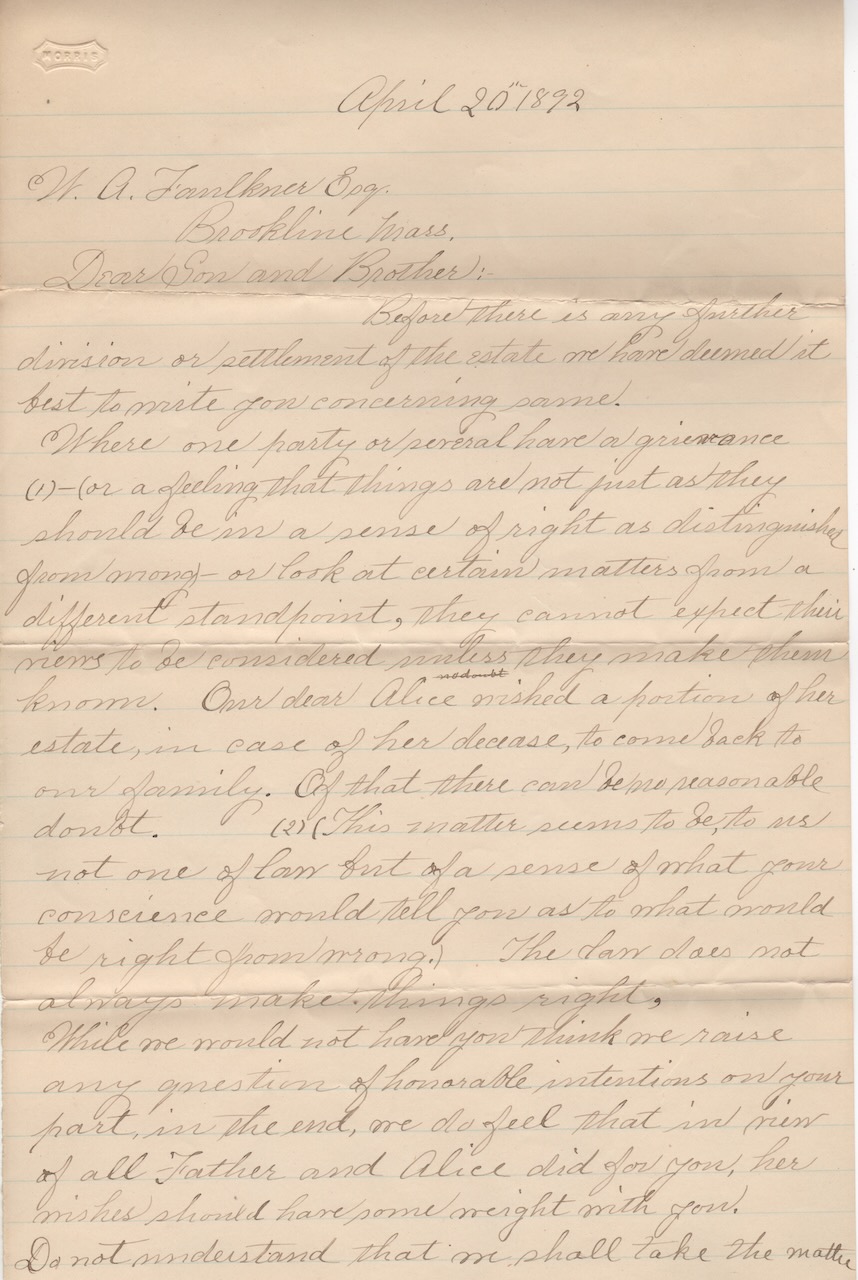 MORRIS
April 20th 1892
W. A. Faulkner Esq.
Brookline Mass.
Dear Son and Brother:-
Before there is any further
division or settlement of the estate we have deemed it
best to write you concerning same.
Where one party or several have a grievance
(1)-(or a feeling that things are not just as they
should be in a sense of right as distinguished
from wrong)- or look at certain matters from a
different standpoint, they cannot expect their
views to be considered unless they make them
known. Our dear Alice no doubt wished a portion of her
estate, in case of her decease, to come back to
our family. Of that there can be no reasonable
doubt. (2) (This matter seems to be, to us
not one of law but of a sense of what your
conscience would tell you as to what would
be right from wrong.) The law does not
always make things right,
While we would not have you think we raise
any question of honorable intentions on your
part, in the end, we do feel that in view
of all Father and Alice did for you, her
wishes should have some weight with you.
Do not understand that we shall take the matter